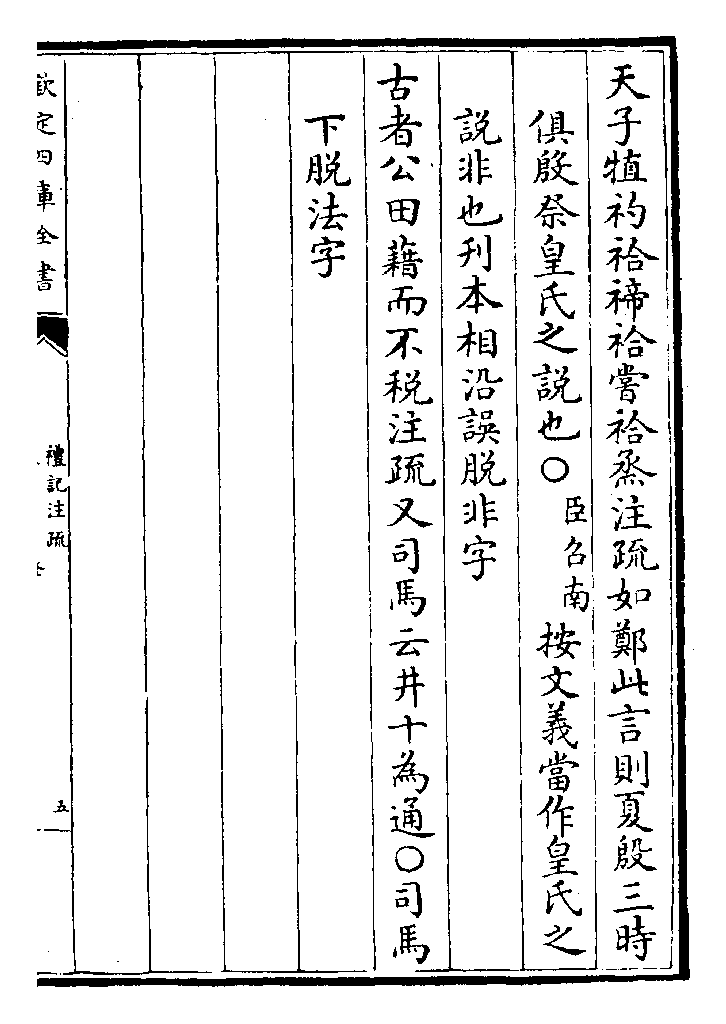 天子犆礿祫禘祫嘗祫烝注疏如鄭此言則夏殷三時
俱殷祭皇氏之說也○臣召南按文義當作皇氏之
說非也刋本相沿誤脫非字
古者公田藉而不稅注疏又司馬云井十為通○司馬
下脫法字
欽定四庫全書
禮記注疏
五